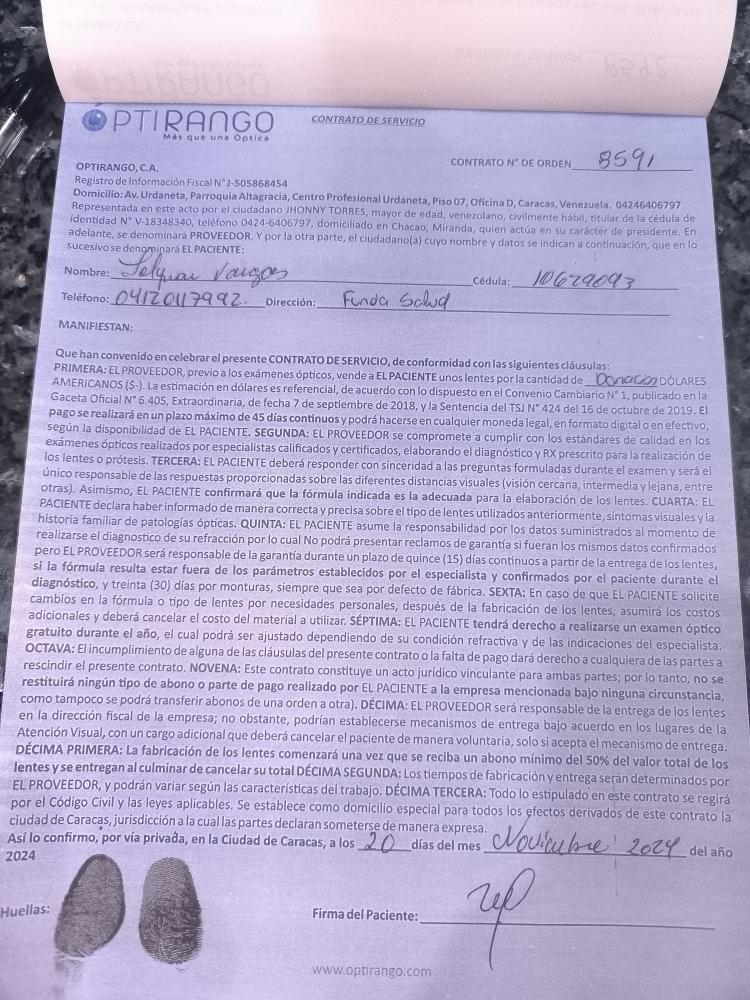 ÓPTIRANGO
Más que una Óptica
CONTRATO DE SERVICIO
CONTRATO N° DE ORDEN 8591
OPTIRANGO, C.A.
Registro de Información Fiscal N°J-505868454
Domicilio: Av. Urdaneta, Parroquia Altagracia, Centro Profesional Urdaneta, Piso 07, Oficina D, Caracas, Venezuela. 04246406797
Representada en este acto por el ciudadano JHONNY TORRES, mayor de edad, venezolano, civilmente hábil, titular de la cédula de
identidad N° V-18348340, teléfono 0424-6406797, domiciliado en Chacao, Miranda, quien actúa en su carácter de presidente. En
adelante, se denominará PROVEEDOR. Y por la otra parte, el ciudadano(a) cuyo nombre y datos se indican a continuación, que en lo
sucesivo se denominará EL PACIENTE:
Nombre: Vargas Cédula: 10629093
Teléfono: 04120117992. Dirección: Funda Salud
MANIFIESTAN:
Que han convenido en celebrar el presente CONTRATO DE SERVICIO, de conformidad con las siguientes cláusulas:
PRIMERA: EL PROVEEDOR, previo a los exámenes ópticos, vende a EL PACIENTE unos lentes por la cantidad de Donación DÓLARES
AMERICANOS ($-). La estimación en dólares es referencial, de acuerdo con lo dispuesto en el Convenio Cambiario N° 1, publicado en la
Gaceta Oficial N° 6.405, Extraordinaria, de fecha 7 de septiembre de 2018, y la Sentencia del TSJ N° 424 del 16 de octubre de 2019. El
pago se realizará en un plazo máximo de 45 días continuos y podrá hacerse en cualquier moneda legal, en formato digital o en efectivo,
según la disponibilidad de EL PACIENTE. SEGUNDA: EL PROVEEDOR se compromete a cumplir con los estándares de calidad en los
exámenes ópticos realizados por especialistas calificados y certificados, elaborando el diagnóstico y RX prescrito para la realización de
los lentes o prótesis. TERCERA: EL PACIENTE deberá responder con sinceridad a las preguntas formuladas durante el examen y será el
único responsable de las respuestas proporcionadas sobre las diferentes distancias visuales (visión cercana, intermedia y lejana, entre
otras). Asimismo, EL PACIENTE confirmará que la fórmula indicada es la adecuada para la elaboración de los lentes. CUARTA: EL
PACIENTE declara haber informado de manera correcta y precisa sobre el tipo de lentes utilizados anteriormente, síntomas visuales y la
historia familiar de patologías ópticas. QUINTA: EL PACIENTE asume la responsabilidad por los datos suministrados al momento de
realizarse el diagnostico de su refracción por lo cual No podrá presentar reclamos de garantía si fueran los mismos datos confirmados
pero EL PROVEEDOR será responsable de la garantía durante un plazo de quince (15) días continuos a partir de la entrega de los lentes,
si la fórmula resulta estar fuera de los parámetros establecidos por el especialista y confirmados por el paciente durante el
diagnóstico, y treinta (30) días por monturas, siempre que sea por defecto de fábrica. SEXTA: En caso de que EL PACIENTE solicite
cambios en la fórmula o tipo de lentes por necesidades personales, después de la fabricación de los lentes, asumirá los costos
adicionales y deberá cancelar el costo del material a utilizar. SÉPTIMA: EL PACIENTE tendrá derecho a realizarse un examen óptico
gratuito durante el año, el cual podrá ser ajustado dependiendo de su condición refractiva y de las indicaciones del especialista.
OCTAVA: El incumplimiento de alguna de las cláusulas del presente contrato o la falta de pago dará derecho a cualquiera de las partes a
rescindir el presente contrato. NOVENA: Este contrato constituye un acto jurídico vinculante para ambas partes; por lo tanto, no se
restituirá ningún tipo de abono o parte de pago realizado por EL PACIENTE a la empresa mencionada bajo ninguna circunstancia,
como tampoco se podrá transferir abonos de una orden a otra). DÉCIMA: EL PROVEEDOR será responsable de la entrega de los lentes
en la dirección fiscal de la empresa; no obstante, podrían establecerse mecanismos de entrega bajo acuerdo en los lugares de la
Atención Visual, con un cargo adicional que deberá cancelar el paciente de manera voluntaria, solo si acepta el mecanismo de entrega.
DÉCIMA PRIMERA: La fabricación de los lentes comenzará una vez que se reciba un abono mínimo del 50% del valor total de los
lentes y se entregan al culminar de cancelar su total DÉCIMA SEGUNDA: Los tiempos de fabricación y entrega serán determinados por
EL PROVEEDOR, y podrán variar según las características del trabajo. DÉCIMA TERCERA: Todo lo estipulado en este contrato se regirá
por el Código Civil y las leyes aplicables. Se establece como domicilio especial para todos los efectos derivados de este contrato la
ciudad de Caracas, jurisdicción a la cual las partes declaran someterse de manera expresa.
Así lo confirmo, por vía privada, en la Ciudad de Caracas, a los 20 días del mes Noviembre 2024 del año
2024
Huellas:
Firma del Paciente:
www.optirango.com